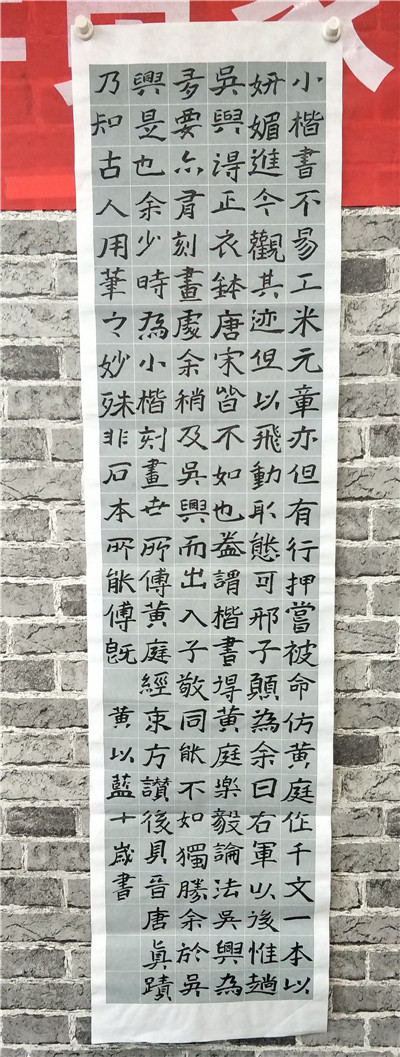 小楷書不易工米元章亦但有行押嘗被命仿黃庭作千文一本以
妍媚進今觀其迹但以飛動取態可邪子顛為余曰右軍以後惟趙
吳興得正衣鉢唐宋皆不如也蓋謂楷書得黃庭樂毅論法吳興為
多要亦有刻畫處余稍及吳興而出入子敬同能不如獨勝余於吳
興是也余少時為小楷刻畫世所傳黃庭經東方讚後見晉唐真蹟
乃知古人用筆之妙殊非石本所能傳既 黃以藍十歲書